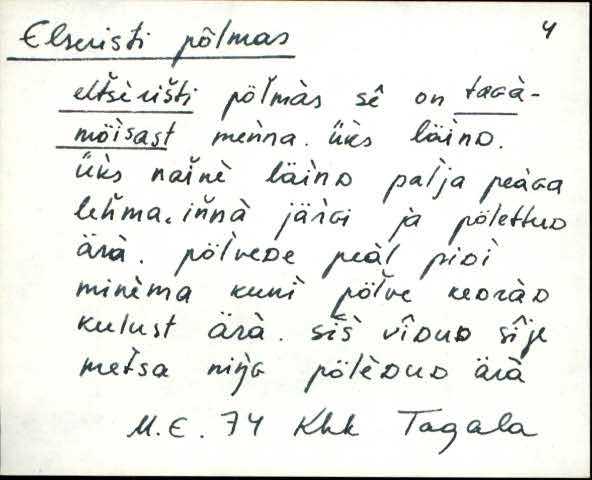 Elseristi põlmas
4
eltšèrišti põl̆màs sê on taɢà-
mõisast menna. üks läinᴅ.
üks naĭnè läinᴅ palja peäɢa
lehma. innà järɢi ja põlettuᴅ
ärà. põlveᴅe peäl piᴅi
minèma kuni põl̆ve keᴅràᴅ
kulust ärà. siš vîᴅuᴅ sîje
metsa nijɢ põlèᴅuᴅ ärà
M.E. 74 Khk Tagala